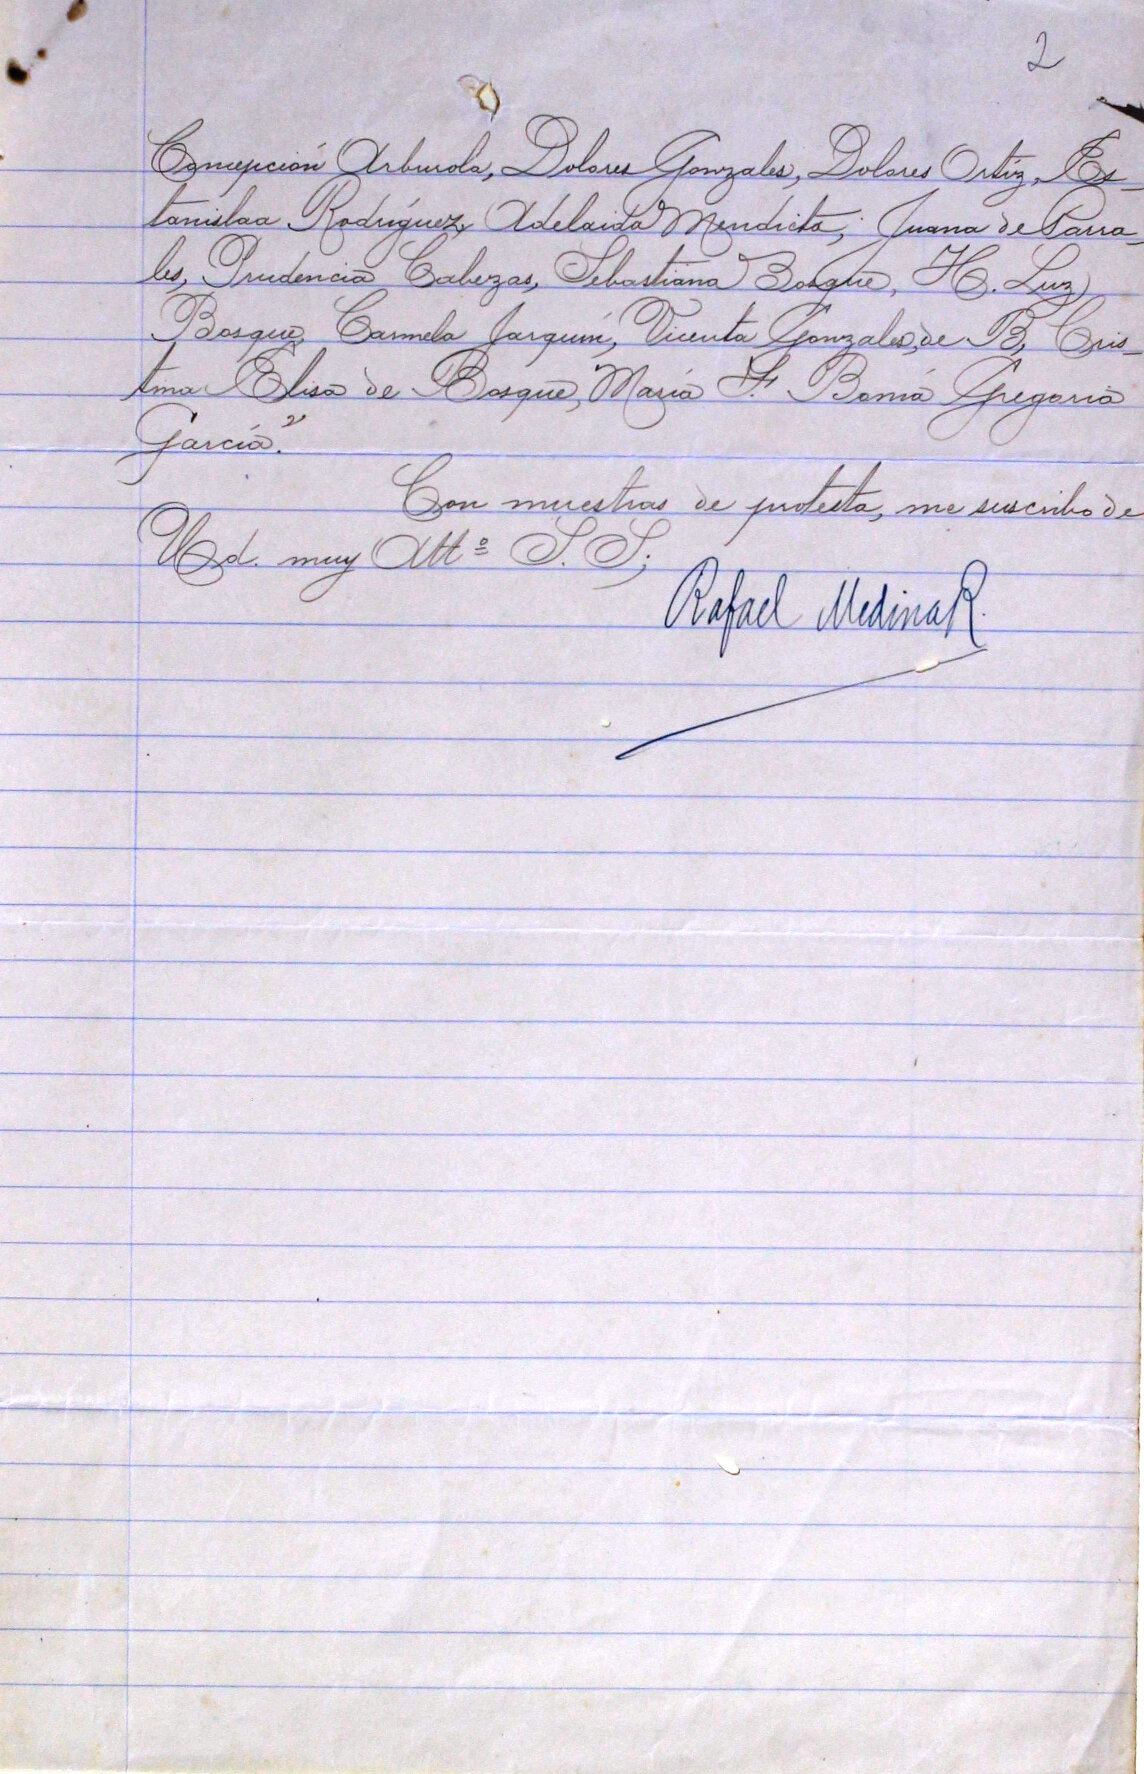 2
Concepción Arburola, Dolores Gonzales, Dolores Ortíz, Es-
tanislaa Rodríguez, Adelaida Mendieta, Juana de Parra-
les, Prudencia Cabezas, Sebastiana Bosque, H. Luz
Bosque, Carmela Jarquín, Vicenta Gonzales, de B, Cris-
tina Elisa de Bosque, María F. Gregoria
García."
Con muestras de protesta, me suscribo de
Ud. muy Att.º S. S;
Rafael Medina R.